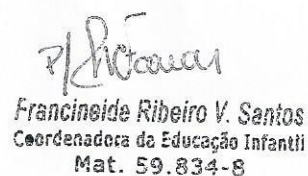 P/
Francineide Ribeiro V. Santos
Coordenadora da Educação Infantil
Mat. 59.834-8